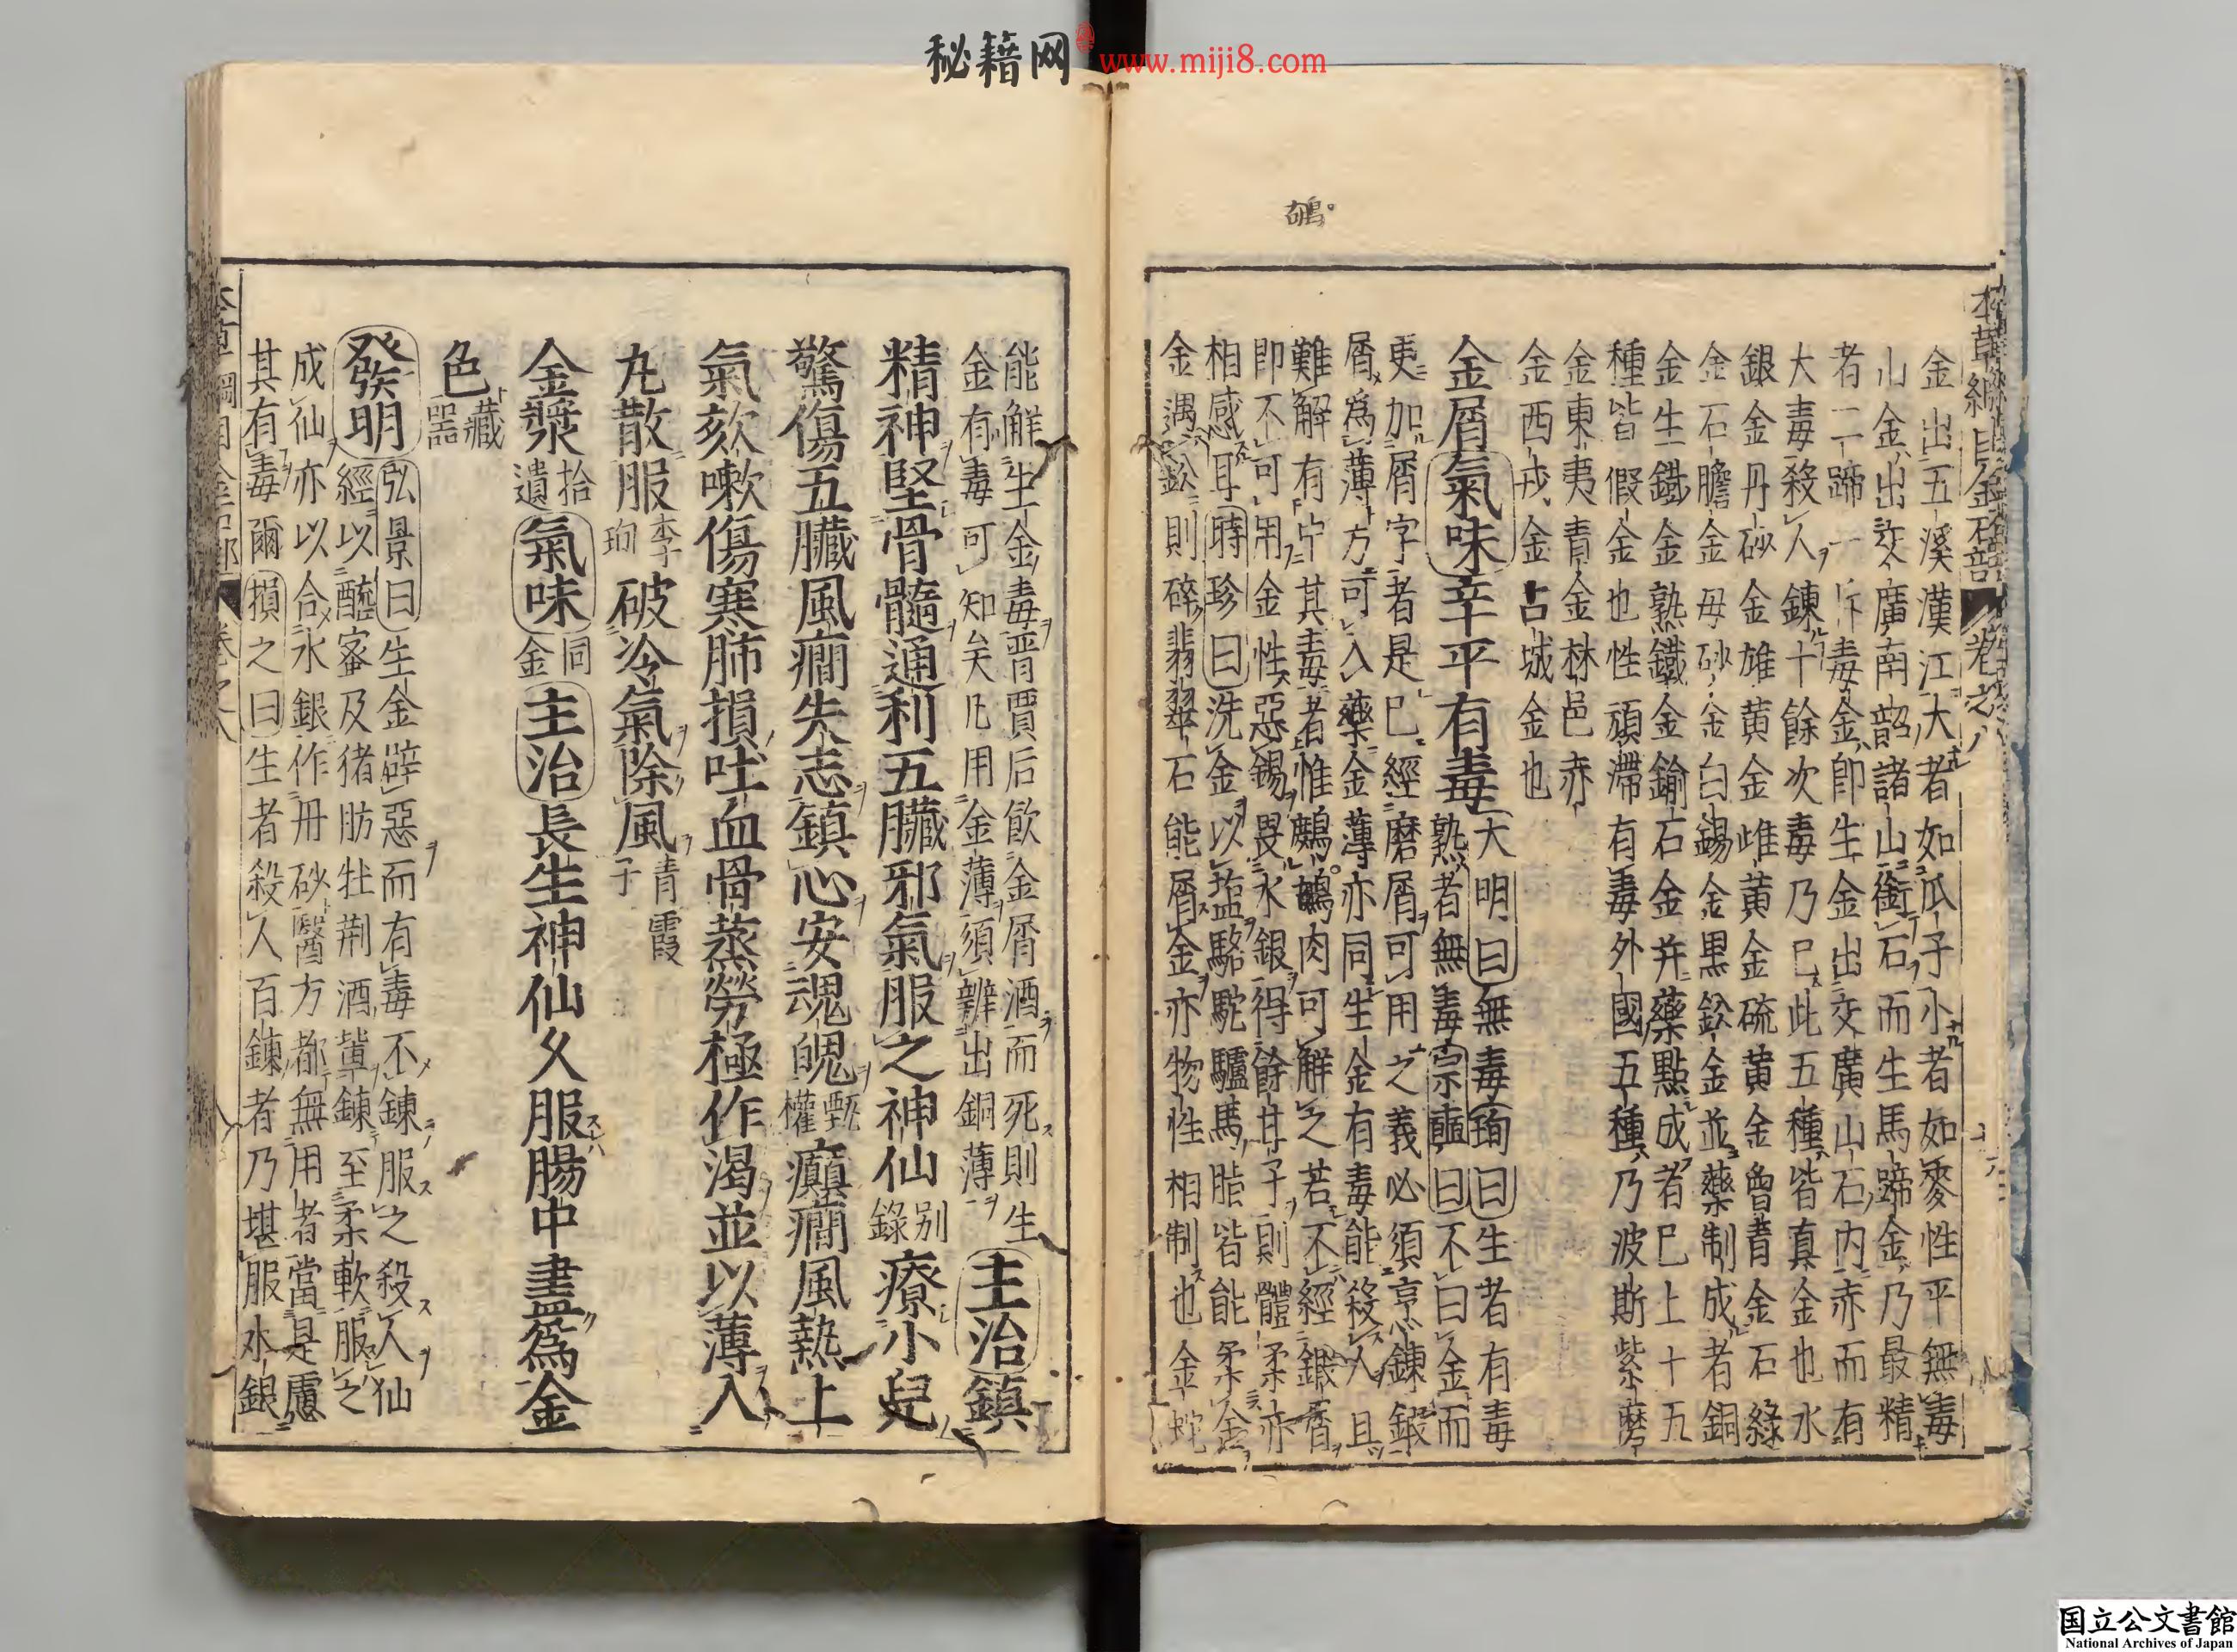 秘籍网 www.miji8.com
鷓
本草綱目金石部 卷之八
金出五溪漢江大者如瓜子小者如麥性平無毒
山金出交廣南韶諸山銜石而生馬蹄金乃最精
者二蹄一斤毒金即生金出交廣山石內赤而有
大毒殺人鍊十餘次毒乃已此五種皆真金也水
銀金丹砂金雄黃金雌黃金硫黃金曾青金石綠
金石膽金母砂金白錫金黑鉛金並藥制成者銅
金生鐵金熟鐵金鍮石金并藥點成者已上十五
種皆假金也性頑滯有毒外國五種乃波斯紫磨
金東夷青金林邑赤
金西戎金占城金也
金屑氣味辛平有毒
大明曰無毒珣曰生者有毒
熟者無毒宗奭曰不曰金而
更加屑字者是已經磨屑可用之義必須烹鍊鍛
屑為薄方可入藥金薄亦同生金有毒能殺人且
難解有中其毒者惟鷓鴣肉可解之若不經鍛屑
即不可用金性惡錫畏水銀得餘甘子則體柔亦
相感耳時珍曰洗金以鹽駱駝驢馬脂皆能柔金
金遇鉛則碎翡翠石能屑金亦物性相制也金蛇
能解生金毒晉賈后飲金屑酒而死則生
金有毒可知矣凡用金薄須辨出銅薄
主治鎮
精神堅骨髓通利五臟邪氣服之神仙別錄療小兒
驚傷五臟風癎失志鎮心安魂魄甄權癲癎風熱上
氣欬嗽傷寒肺損吐血骨蒸勞極作渴並以薄入
丸散服李珣破冷氣除風青霞子
金漿拾遺氣味同金主治長生神仙久服腸中盡為金
色藏器
發明弘景曰生金辟惡而有毒不鍊服之殺人仙
經以醯蜜及猪肪牡荆酒輩鍊至柔軟服之
成仙亦以合水銀作丹砂醫方都無用者當是慮
其有毒爾損之曰生者殺人百鍊者乃堪服水銀
国立公文書館
National Archives of Japan